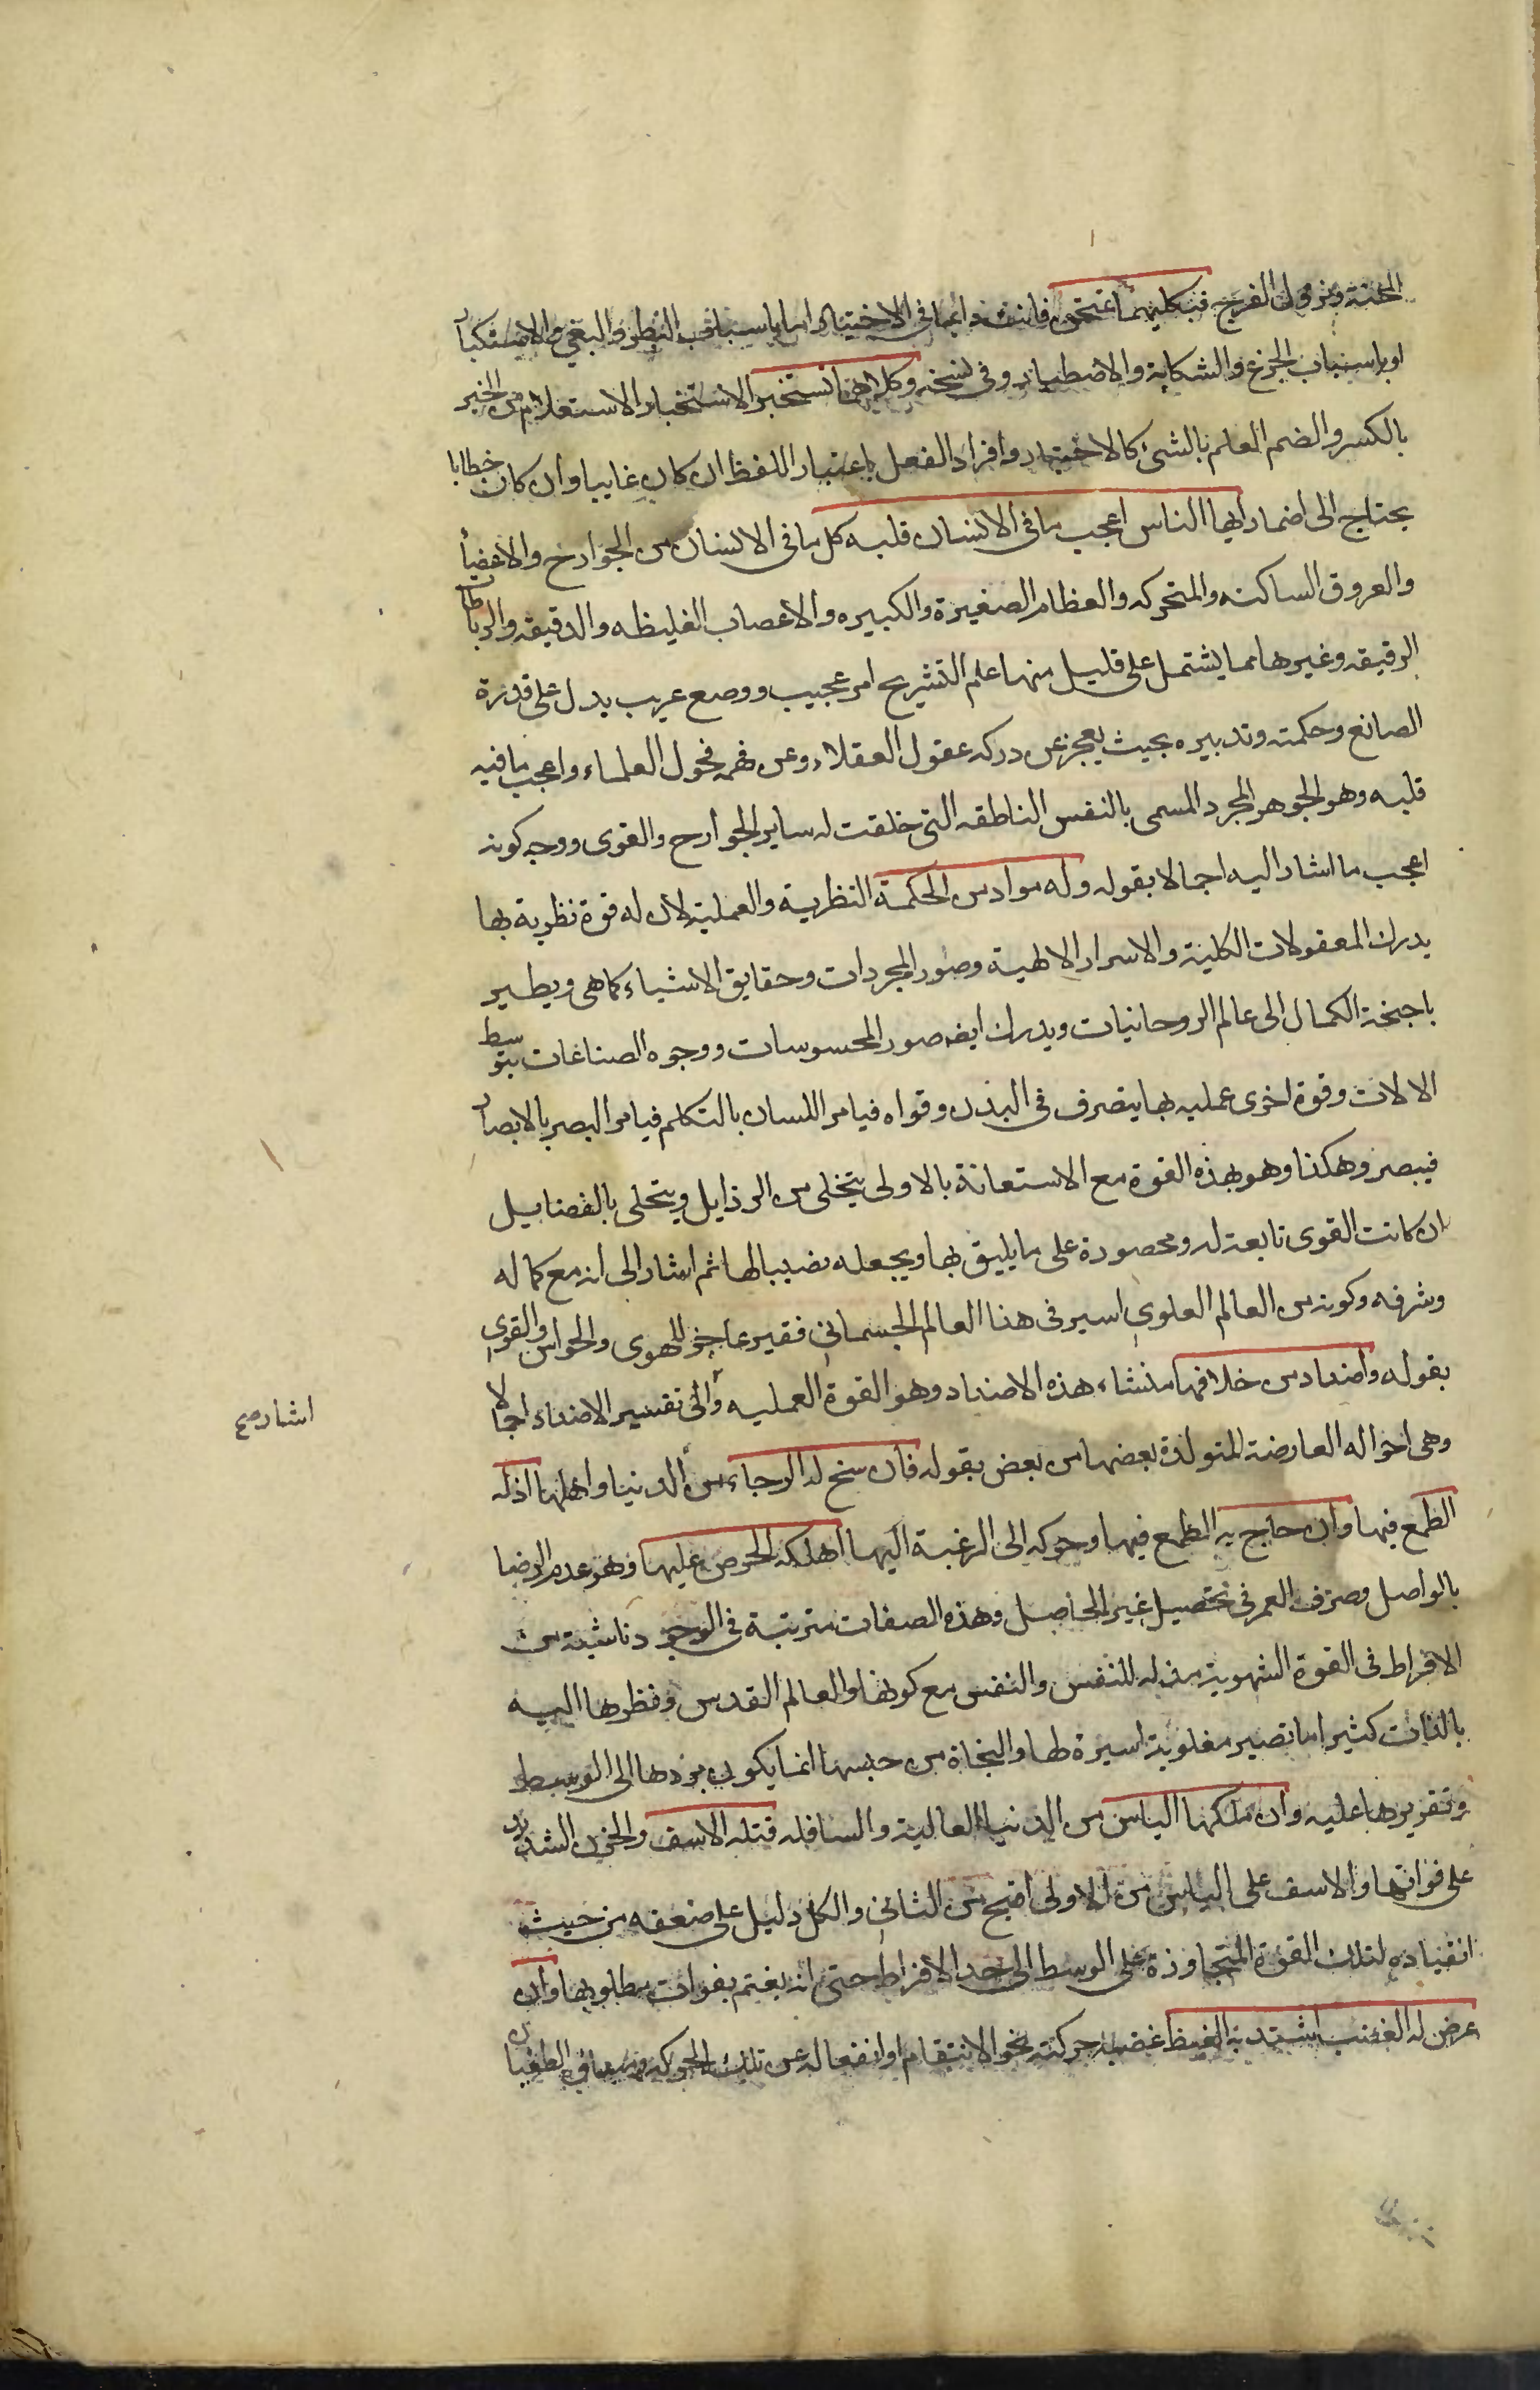 المحنة ونزول الفرج فبكليهما تمتحن فانت دائما في الاختبار اما باسباب البطر والبغي والاستكبار
او باسباب الجزع والشكاية والاضطبار وفي نسخة وكلاهما تستخبر الاستخبار الاستعلام من الخبر
بالكسر والضم العلم بالشئ كالاختبار وافراد الفعل باعتبار اللفظ ان كان غايبا وان كان خطابا
يحتاج الى اضمار ايها الناس اعجب ما في الانسان قلبه كل ما في الانسان من الجوارح والاعضأ
والعروق الساكنه والمتحركه والعظام الصغيرة والكبيره والاعصاب الغليظه والدقيقه والرباطا
الرقيقه وغيرها مما يشتمل على قليل منها علم التشريح امر عجيب ووضع غريب يدل على قدرة
الصانع وحكمته وتدبيره بحيث يعجز عن دركه عقول العقلاء وعن فهمه فحول العلماء واعجب ما فيه
قلبه وهو الجوهر المجرد المسمى بالنفس الناطقه التى خلقت له ساير الجوارح والقوى ووجه كونه
اعجب ما اشار اليه اجمالا بقوله وله مواد من الحكمة النظرية والعملية لان له قوة نظرية بها
يدرك المعقولات الكلية والاسرار الالهية وصور المجردات وحقايق الاشياء كما هى ويطير
باجنحة الكمال الى عالم الروحانيات ويدرك ايضه صور المحسوسات ووجوه الصناعات بتوسط
الالات وقوة اخرى عمليه بها يتصرف في البدن وقواه فيامر اللسان بالتكلم فيامر البصر بالابصار
فيبصر وهكذا وهو بهذه القوة مع الاستعانة بالاولى يتخلى من الرذايل ويتحلى بالفضايل
ان كانت القوى تابعة له ومحصورة على ما يليق بها ويجعله نصيبا لها ثم اشار الى انه مع كماله
وشرفه وكونه من العالم العلوي اسير في هذا العالم الجسماني فقير عاجز للهوى والحواس والقوى
بقوله واضداد من خلافها منشاء هذه الاضداد وهو القوة العمليه والى تفسير الاضداد اجمالا
اشار صح
وهى احواله العارضة المتولدة بعضها من بعض بقوله فان سنح له الرجاء من الدنيا واهلها اذله
الطمع فيها وان هاج به الطمع فيها وحركه الى الرغبة اليها اهلكه الحرص عليها وهو عدم الرضا
بالواصل وصرف العمر في تحصيل غير الحاصل وهذه الصفات مترتبة في الوجود ناشية من
الافراط فى القوة الشهوية مذله للنفس والنفس مع كونها والعالم القدس ونظرها اليه
بالذات كثيرا ما تصير مغلوبة اسيرة لها والنجاة من حبسها انما يكون بردها الى الوسط
وتقريرها عليه وان ملكها الياس من الدنيا العالية والسافله قتله الاسف والحزن الشديد
على فواتها والاسف على الياس من الاولى اقبح من الثاني والكل دليل على ضعفه من حيث
انقياده لتلك القوة المتجاوزة على الوسط الى حد الافراط حتى انه يغتم بفوات مطلوبها وان
عرض له الغضب اشتد به الغيظ غضبه حركته نحو الانتقام او انفعاله عن تلك الحركه في الطغيان